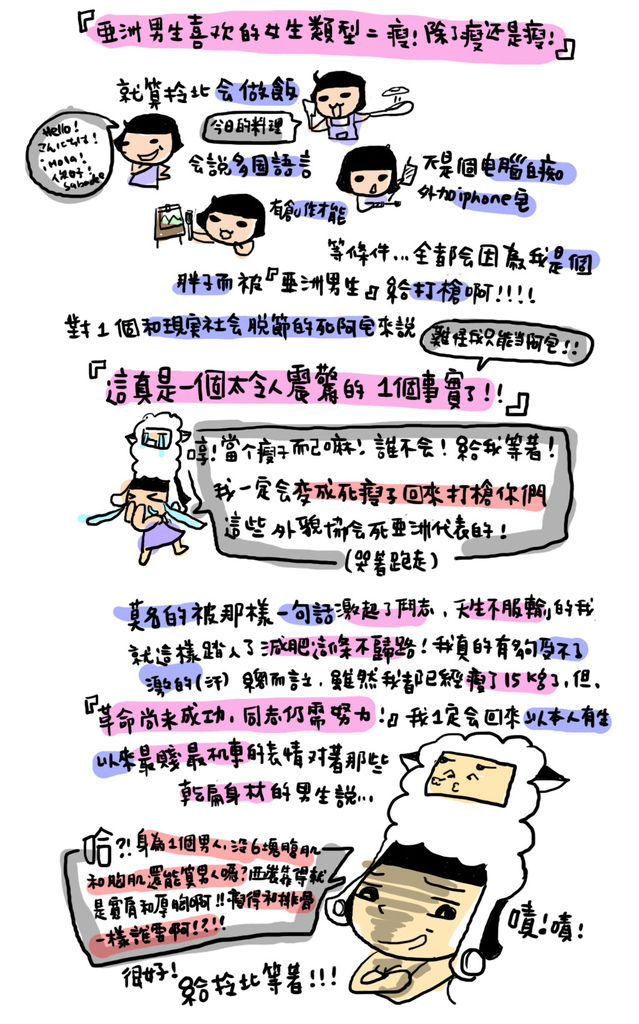 『亞洲男生喜欢的女生類型=瘦！除了瘦还是瘦！』
就算拎北会做飯
今日的料理
Hello!
こんにちは!
¡Hola!
你好!
会說多国語言
不是個电腦白痴
外加iphone宅
有創作才能
等條件...全都会因為我是個
胖子而被『亞洲男生』給打槍啊!!!!
對1個和現実社会脱節的死阿宅來說
難怪我只能当阿宅!!
『這真是一個太令人震驚的1個事實了!!』
哼!當个瘦子而已嘛!誰不会!給我等着!
我一定会变成死瘦子回來打槍你們
這些外貌協会死亞洲代表的!
(哭著跑走)
莫名的被那樣一句話激起了鬥志，天生不服輸的我
就這樣踏入了減肥這條不歸路!我真的有夠受不了
激的(汗)總而言之，雖然我都已經瘦了15kg了，但、
『革命尚未成功，同志仍需努力!』我1定会回來以本人有生
以來最賤最机車的表情对著那些
乾扁身材的男生說...
哈?!身為1個男人,沒6塊腹肌
和胸肌還能算男人嗎?西裝靠得就
是寬肩和厚胸啊!!瘦得和排骨
一樣誰要啊!?!!
嘖!嘖!
很好!
給拎北等著!!!